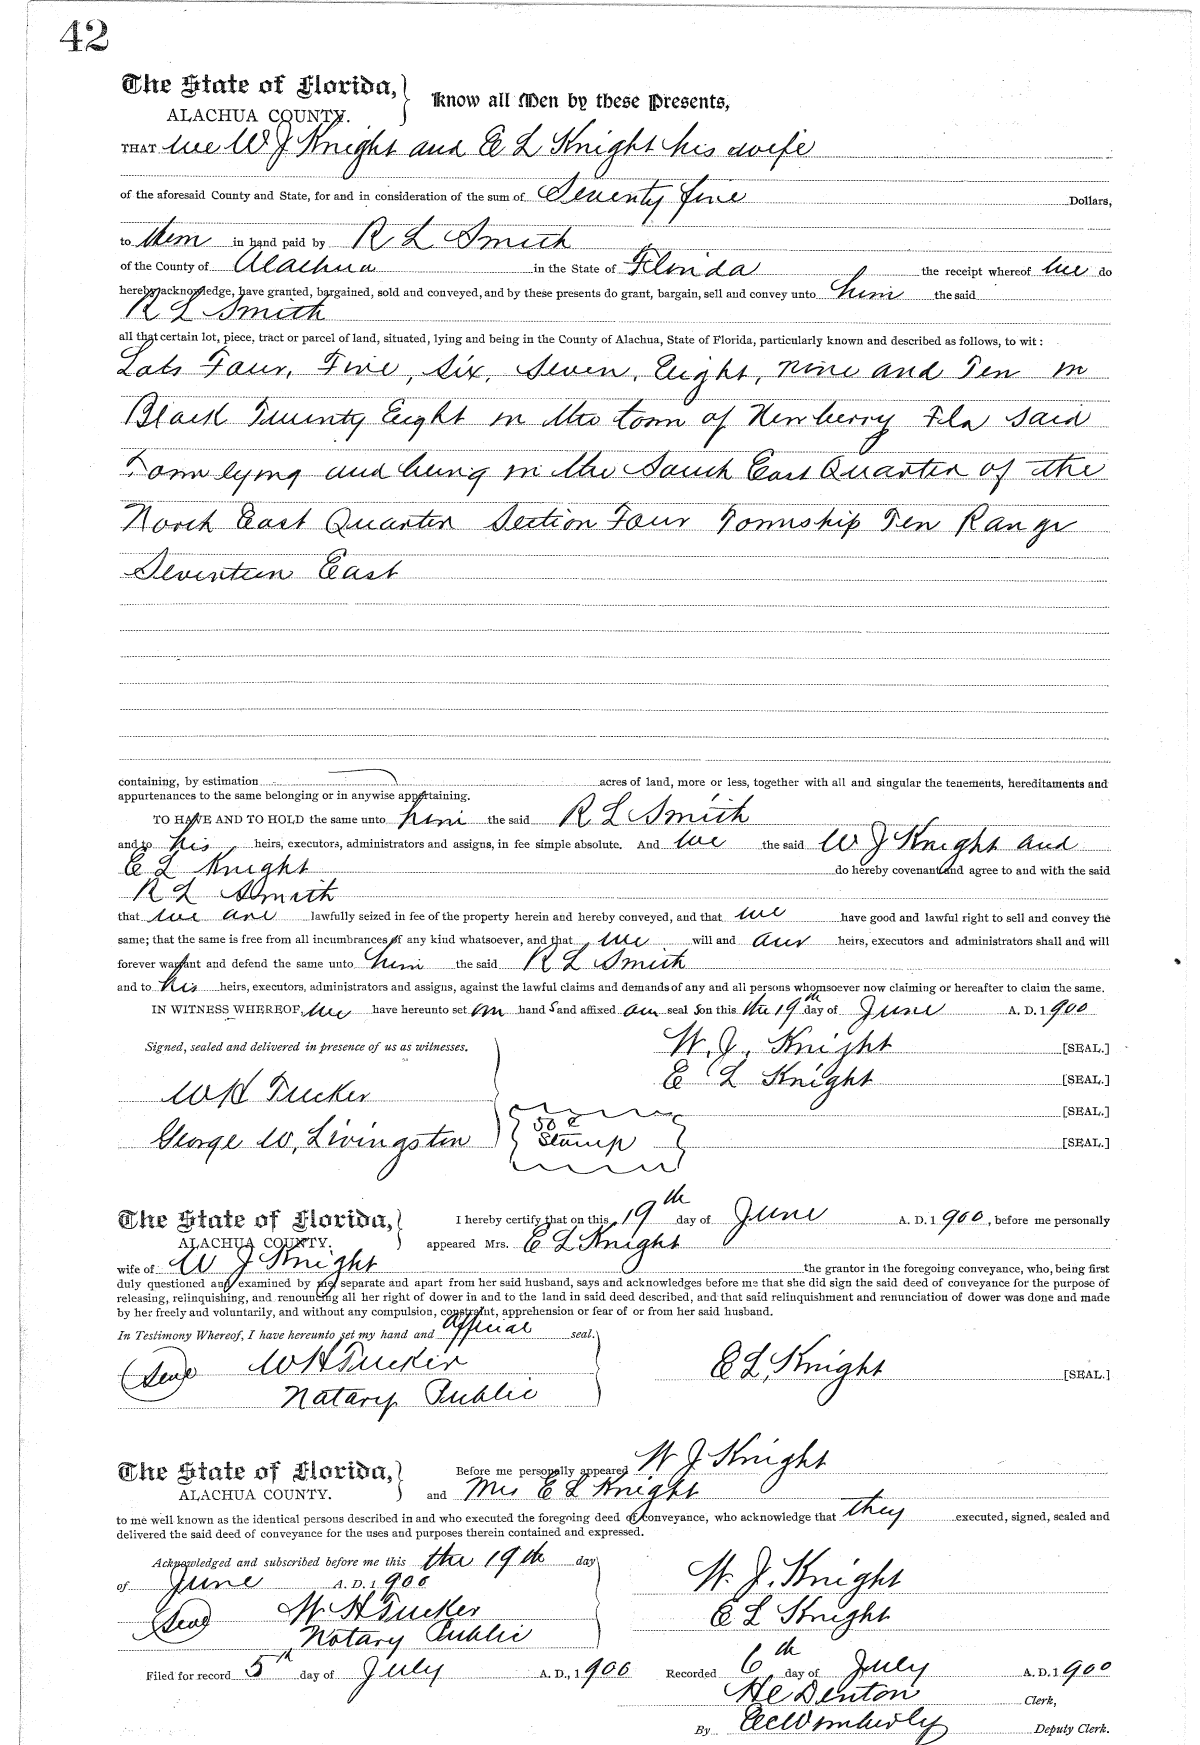 42
The State of Florida, } Know all Men by these Presents,
ALACHUA COUNTY.
THAT we W J Knight and E L Knight his wife
of the aforesaid County and State, for and in consideration of the sum of Seventy five Dollars,
to them in hand paid by R L Smith
of the County of Alachua in the State of Florida the receipt whereof we do
hereby acknowledge, have granted, bargained, sold and conveyed, and by these presents do grant, bargain, sell and convey unto him the said
R L Smith
all that certain lot, piece, tract or parcel of land, situated, lying and being in the County of Alachua, State of Florida, particularly known and described as follows, to wit:
Lots Four, Five, Six, Seven, Eight, nine and Ten in
Block Twenty Eight in the town of Newberry Fla said
Town lying and being in the South East Quarter of the
North East Quarter Section Four Township Ten Range
Seventeen East
containing, by estimation acres of land, more or less, together with all and singular the tenements, hereditaments and
appurtenances to the same belonging or in anywise appertaining.
TO HAVE AND TO HOLD the same unto him the said R L Smith
and to his heirs, executors, administrators and assigns, in fee simple absolute. And we the said W J Knight and
E L Knight do hereby covenant and agree to and with the said
R L Smith
that we are lawfully seized in fee of the property herein and hereby conveyed, and that we have good and lawful right to sell and convey the
same; that the same is free from all incumbrances of any kind whatsoever, and that we will and our heirs, executors and administrators shall and will
forever warrant and defend the same unto him the said R L Smith
and to his heirs, executors, administrators and assigns, against the lawful claims and demands of any and all persons whomsoever now claiming or hereafter to claim the same.
IN WITNESS WHEREOF, we have hereunto set our hand s and affixed our seal s on this the 19th day of June A. D. 1900
Signed, sealed and delivered in presence of us as witnesses. W. J. Knight [SEAL.]
E L Knight [SEAL.]
W H Tucker [SEAL.]
George W. Livingston 50 c Stamp [SEAL.]
The State of Florida, } I hereby certify that on this 19th day of June A. D. 1900, before me personally
ALACHUA COUNTY. appeared Mrs. E L Knight
wife of W J Knight the grantor in the foregoing conveyance, who, being first
duly questioned and examined by me, separate and apart from her said husband, says and acknowledges before me that she did sign the said deed of conveyance for the purpose of
releasing, relinquishing, and renouncing all her right of dower in and to the land in said deed described, and that said relinquishment and renunciation of dower was done and made
by her freely and voluntarily, and without any compulsion, constraint, apprehension or fear of or from her said husband.
In Testimony Whereof, I have hereunto set my hand and official seal.
(Seal) W H Tucker E L Knight [SEAL.]
Notary Public
The State of Florida, } Before me personally appeared W J Knight
ALACHUA COUNTY. and Mrs E L Knight
to me well known as the identical persons described in and who executed the foregoing deed of conveyance, who acknowledge that they executed, signed, sealed and
delivered the said deed of conveyance for the uses and purposes therein contained and expressed.
Acknowledged and subscribed before me this the 19th day
of June A. D. 1900 W. J. Knight
(Seal) W H Tucker E L Knight
Notary Public
Filed for record 5th day of July A. D., 1900 Recorded 6th day of July A. D. 1900
H C Denton Clerk,
By E C Wimberly Deputy Clerk.